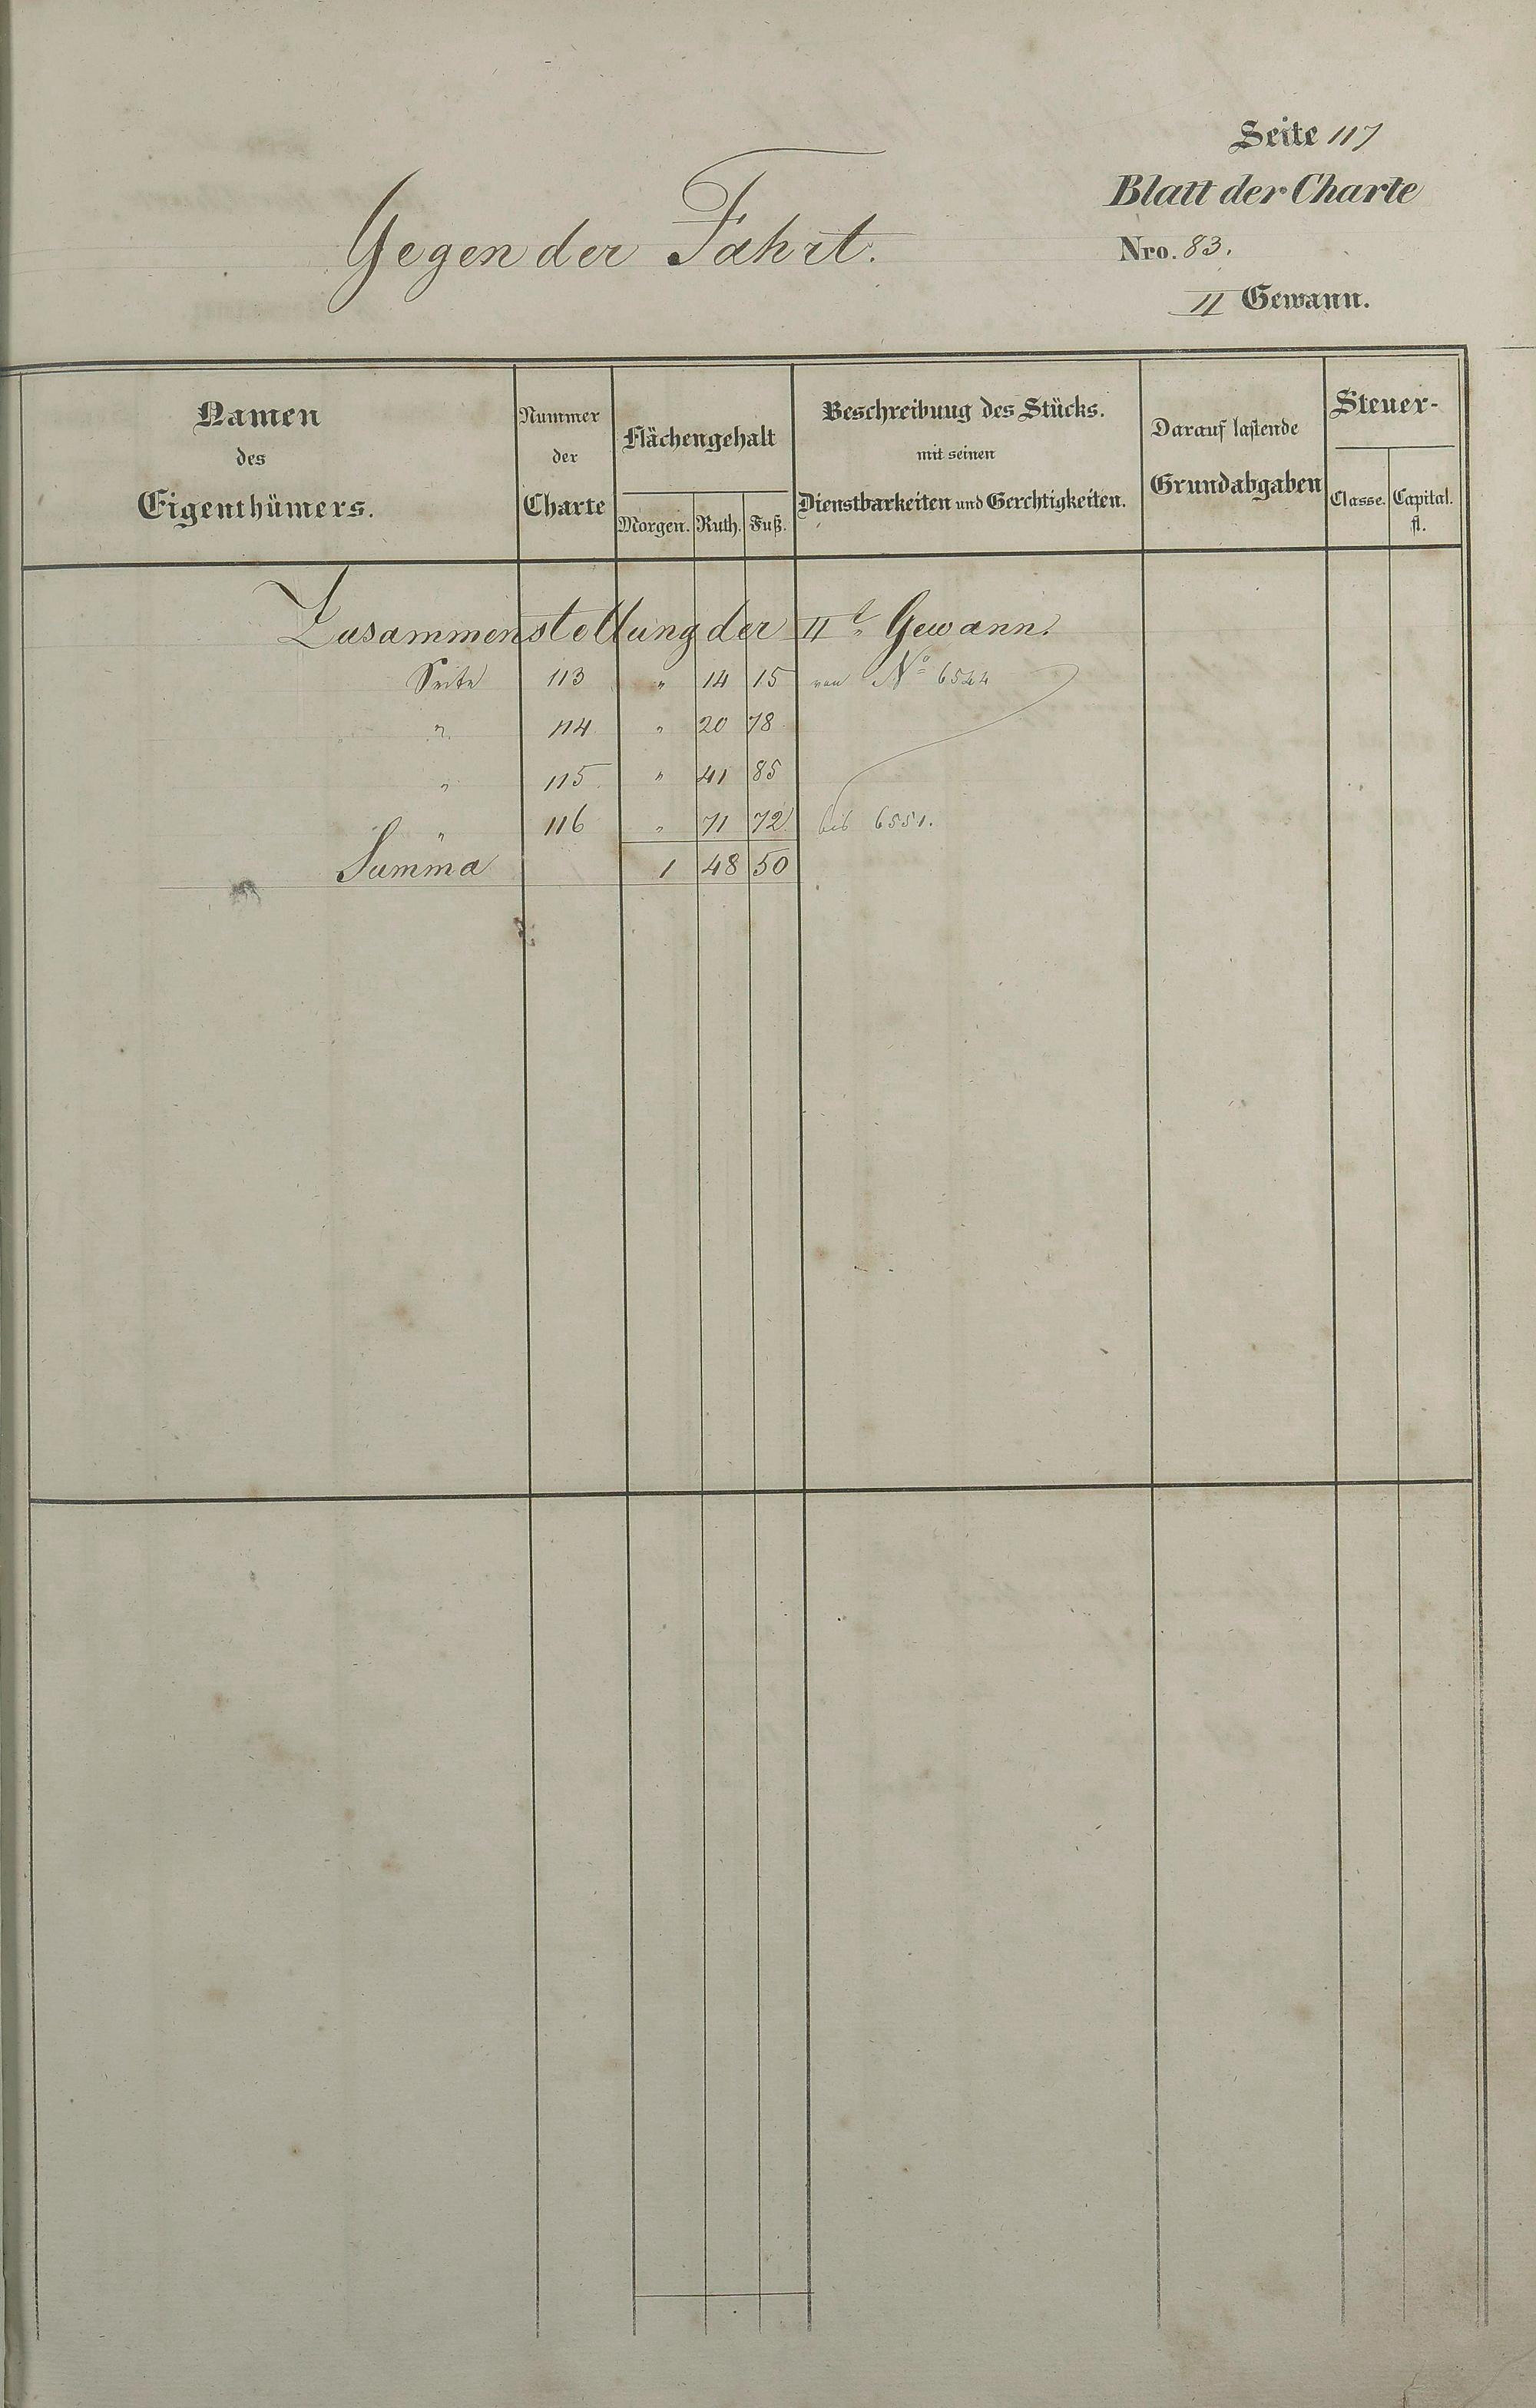 Seite 117
Blatt der Charte
Gegen der Fahrt.
Nro. 83.
II Gewann.
Namen
des
Eigenthümers.
Nummer
der
Charte
Flächengehalt
Morgen. Ruth. Fuß.
Beschreibung des Stücks.
mit seinen
Dienstbarkeiten und Gerechtigkeiten.
Darauf lastende
Grundabgaben
Steuer-
Classe. Capital.
fl.
Zusammenstellung der IIt. Gewann.
Seite 113 " 14 15 von No 6544
" 114. " 20 78
" 115. " 41 85
" 116 " 71 72 bis 6551.
Summa 1 48 50